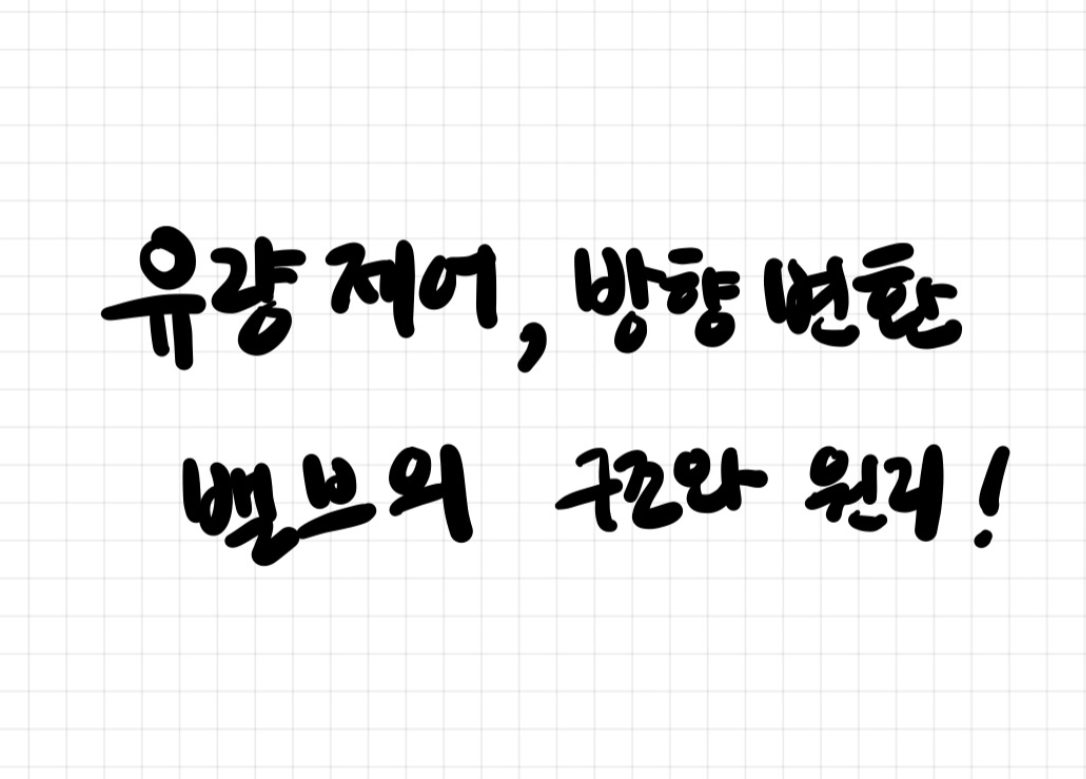 유량 제어, 방향 변환
밸브의 구조와 원리!